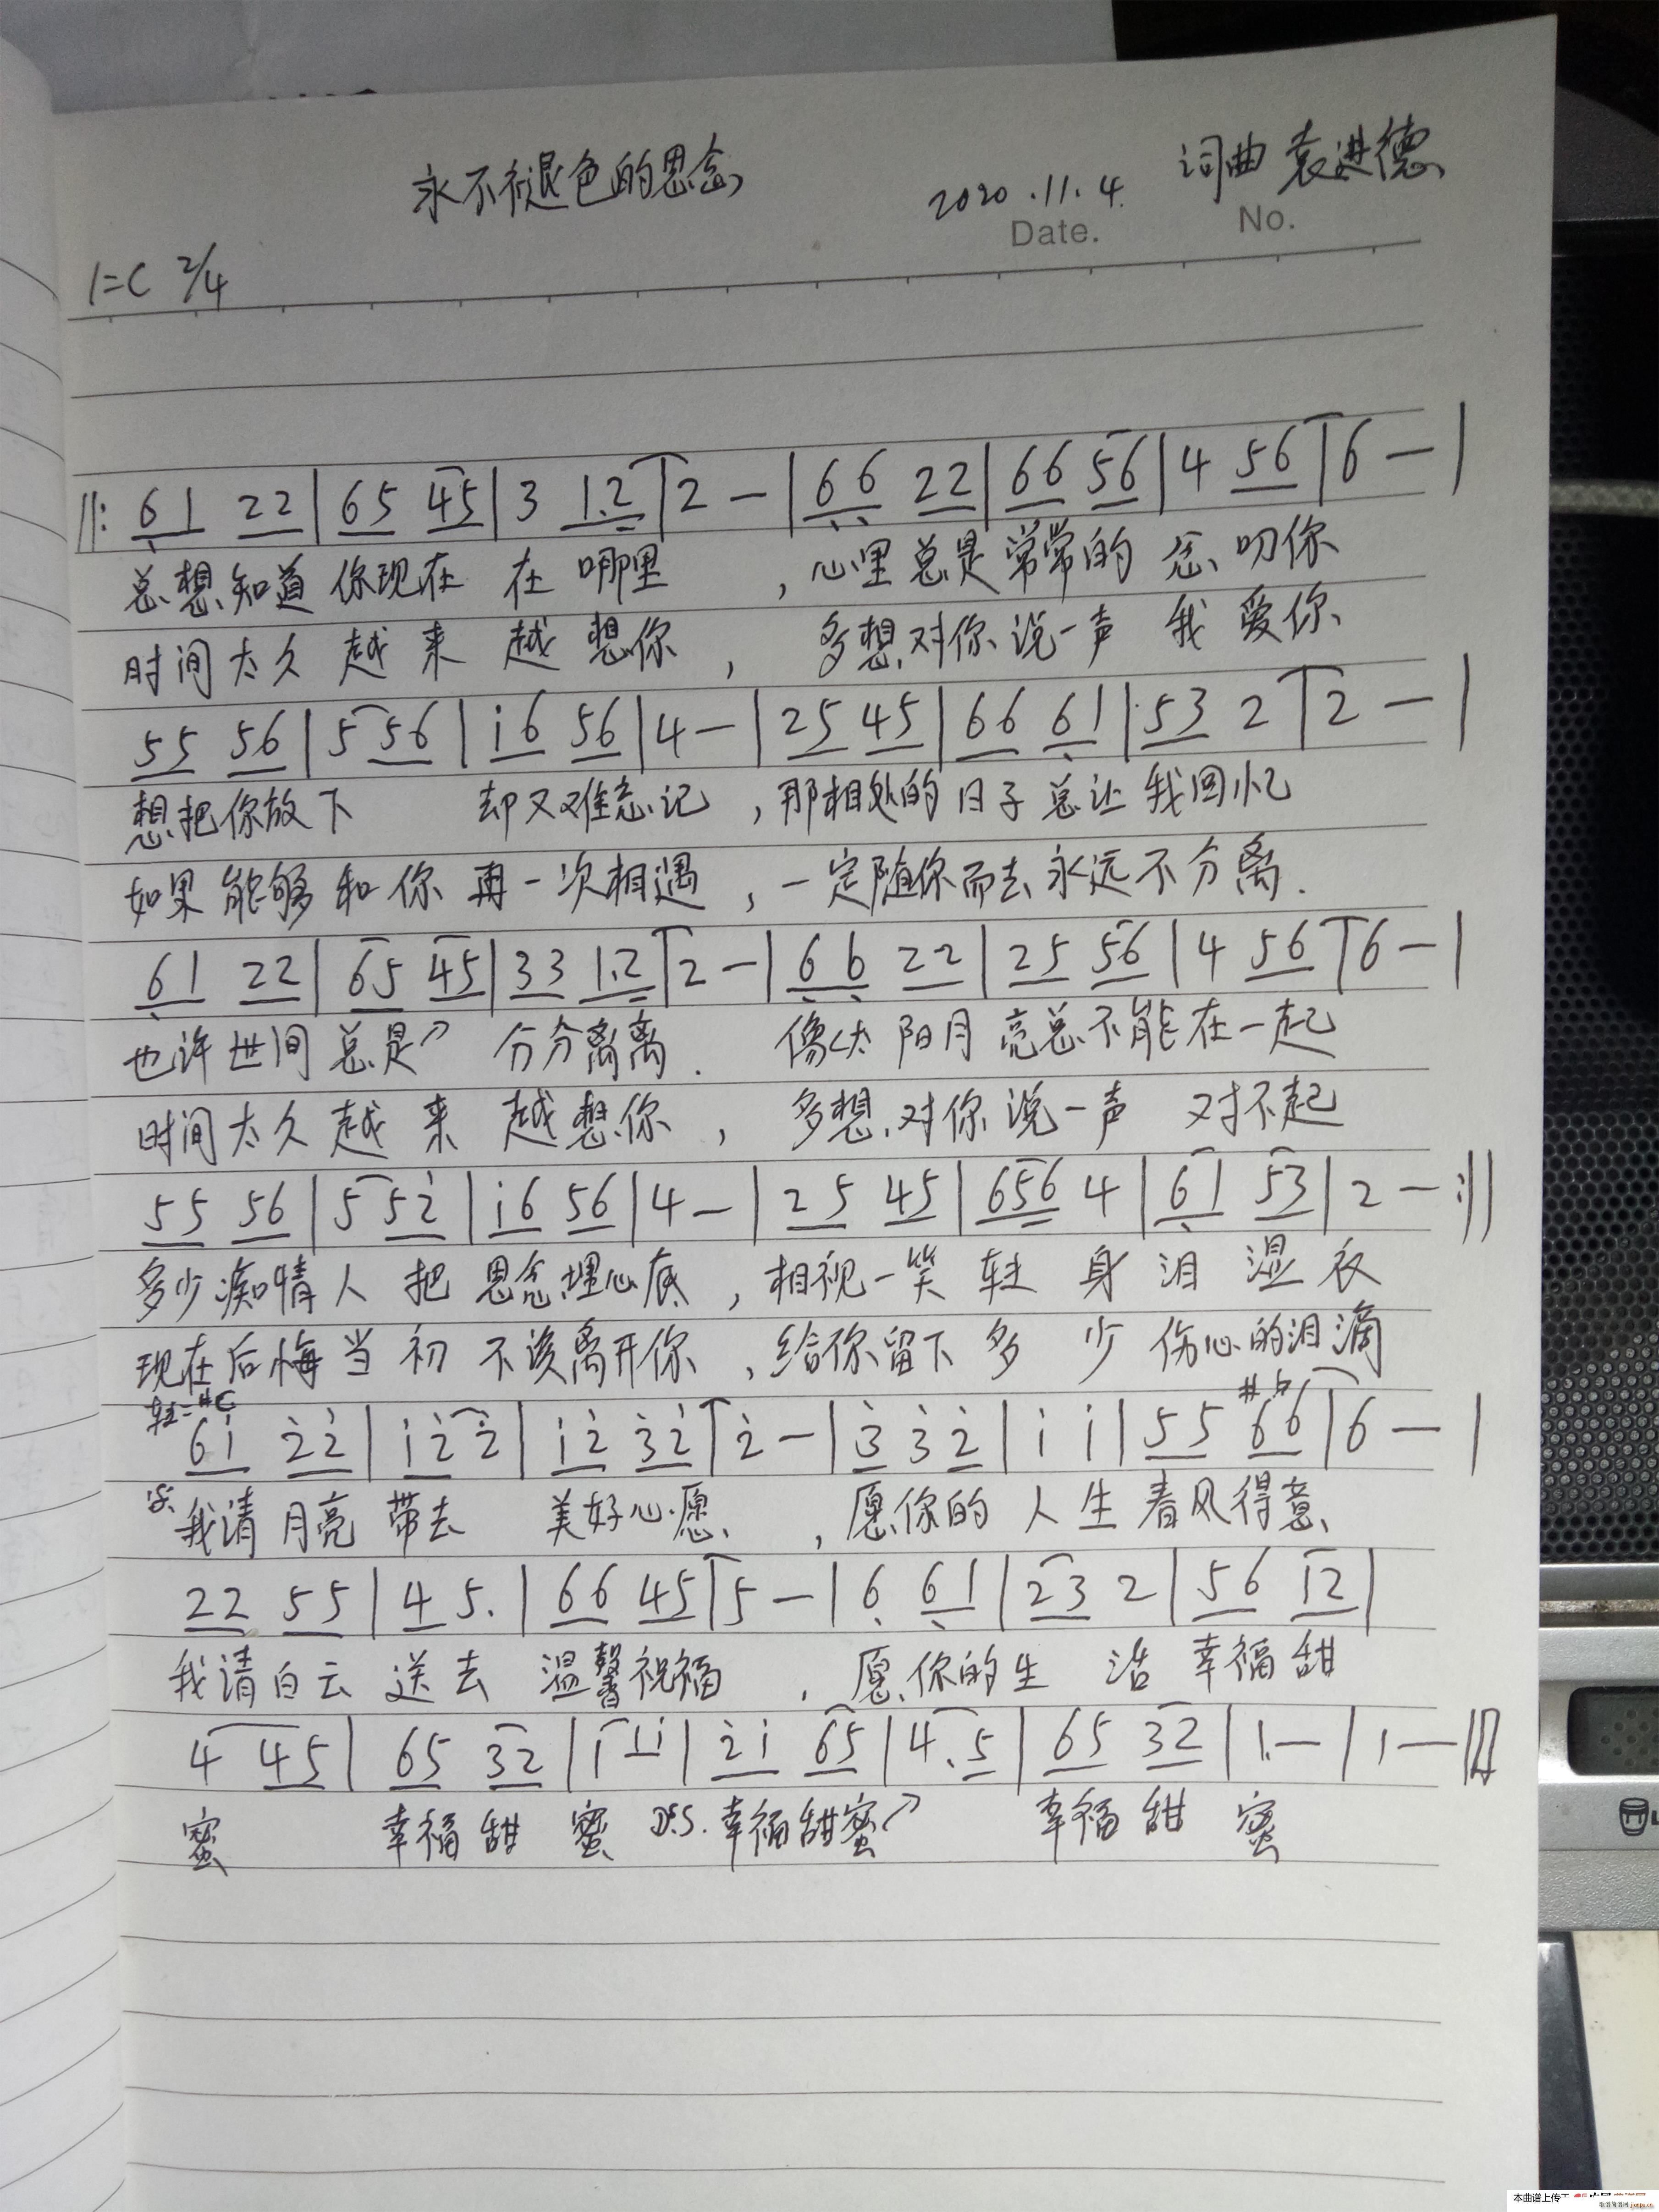 永不褪色的思念
词曲 袁进德
2020.11.4.
Date. No.
1=C 2/4
‖: 61 22 | 65 45 | 3 1.2 | 2 — | 66 22 | 66 56 | 4 56 | 6 — |
总想知道你现在 在 哪里 ，心里总是常常的 念叨你
时间太久 越 来 越 想你 ， 多想对你说一声 我 爱你
55 56 | 5 56 | i6 56 | 4 — | 25 45 | 66 61 | 53 2 | 2 — |
想把你放下 却又难忘记 ，那相处的日子总让我回忆
如果能够和你再一次相遇 ，一定随你而去永远不分离.
61 22 | 65 45 | 33 1.2 | 2 — | 66 22 | 25 56 | 4 56 | 6 — |
也许世间总是↗ 分分离离. 像太阳月亮总不能在一起
时间太久越来 越想你 ， 多想对你说一声 对不起
55 56 | 5 52̇ | i6 56 | 4 — | 25 45 | 656 4 | 61 53 | 2 — :‖
多少痴情人 把 思念埋心底 ，相视一笑 转 身 泪 湿 衣
现在后悔当初 不该离开你 ，给你留下多 少 伤心的泪滴
转=#C
6i 2̇2̇ | i2̇ 2̇ | i2̇ 3̇2̇ | 2̇ — | 3̇ 3̇ 2̇ | i i | 55 #6♮6 | 6 — |
我请月亮 带去 美好心愿 ，愿你的人生春风得意
22 55 | 4 5. | 66 45 | 5 — | 6 61 | 23 2 | 56 12 |
我请白云 送去 温馨祝福 ，愿你的生 活 幸福甜
4 45 | 65 32 | i 1i | 2̇i 65 | 4. 5 | 65 32 | 1. — | 1 — ‖
蜜 幸福甜 蜜 D.S. 幸福甜蜜↗ 幸福甜 蜜
本曲谱上传于